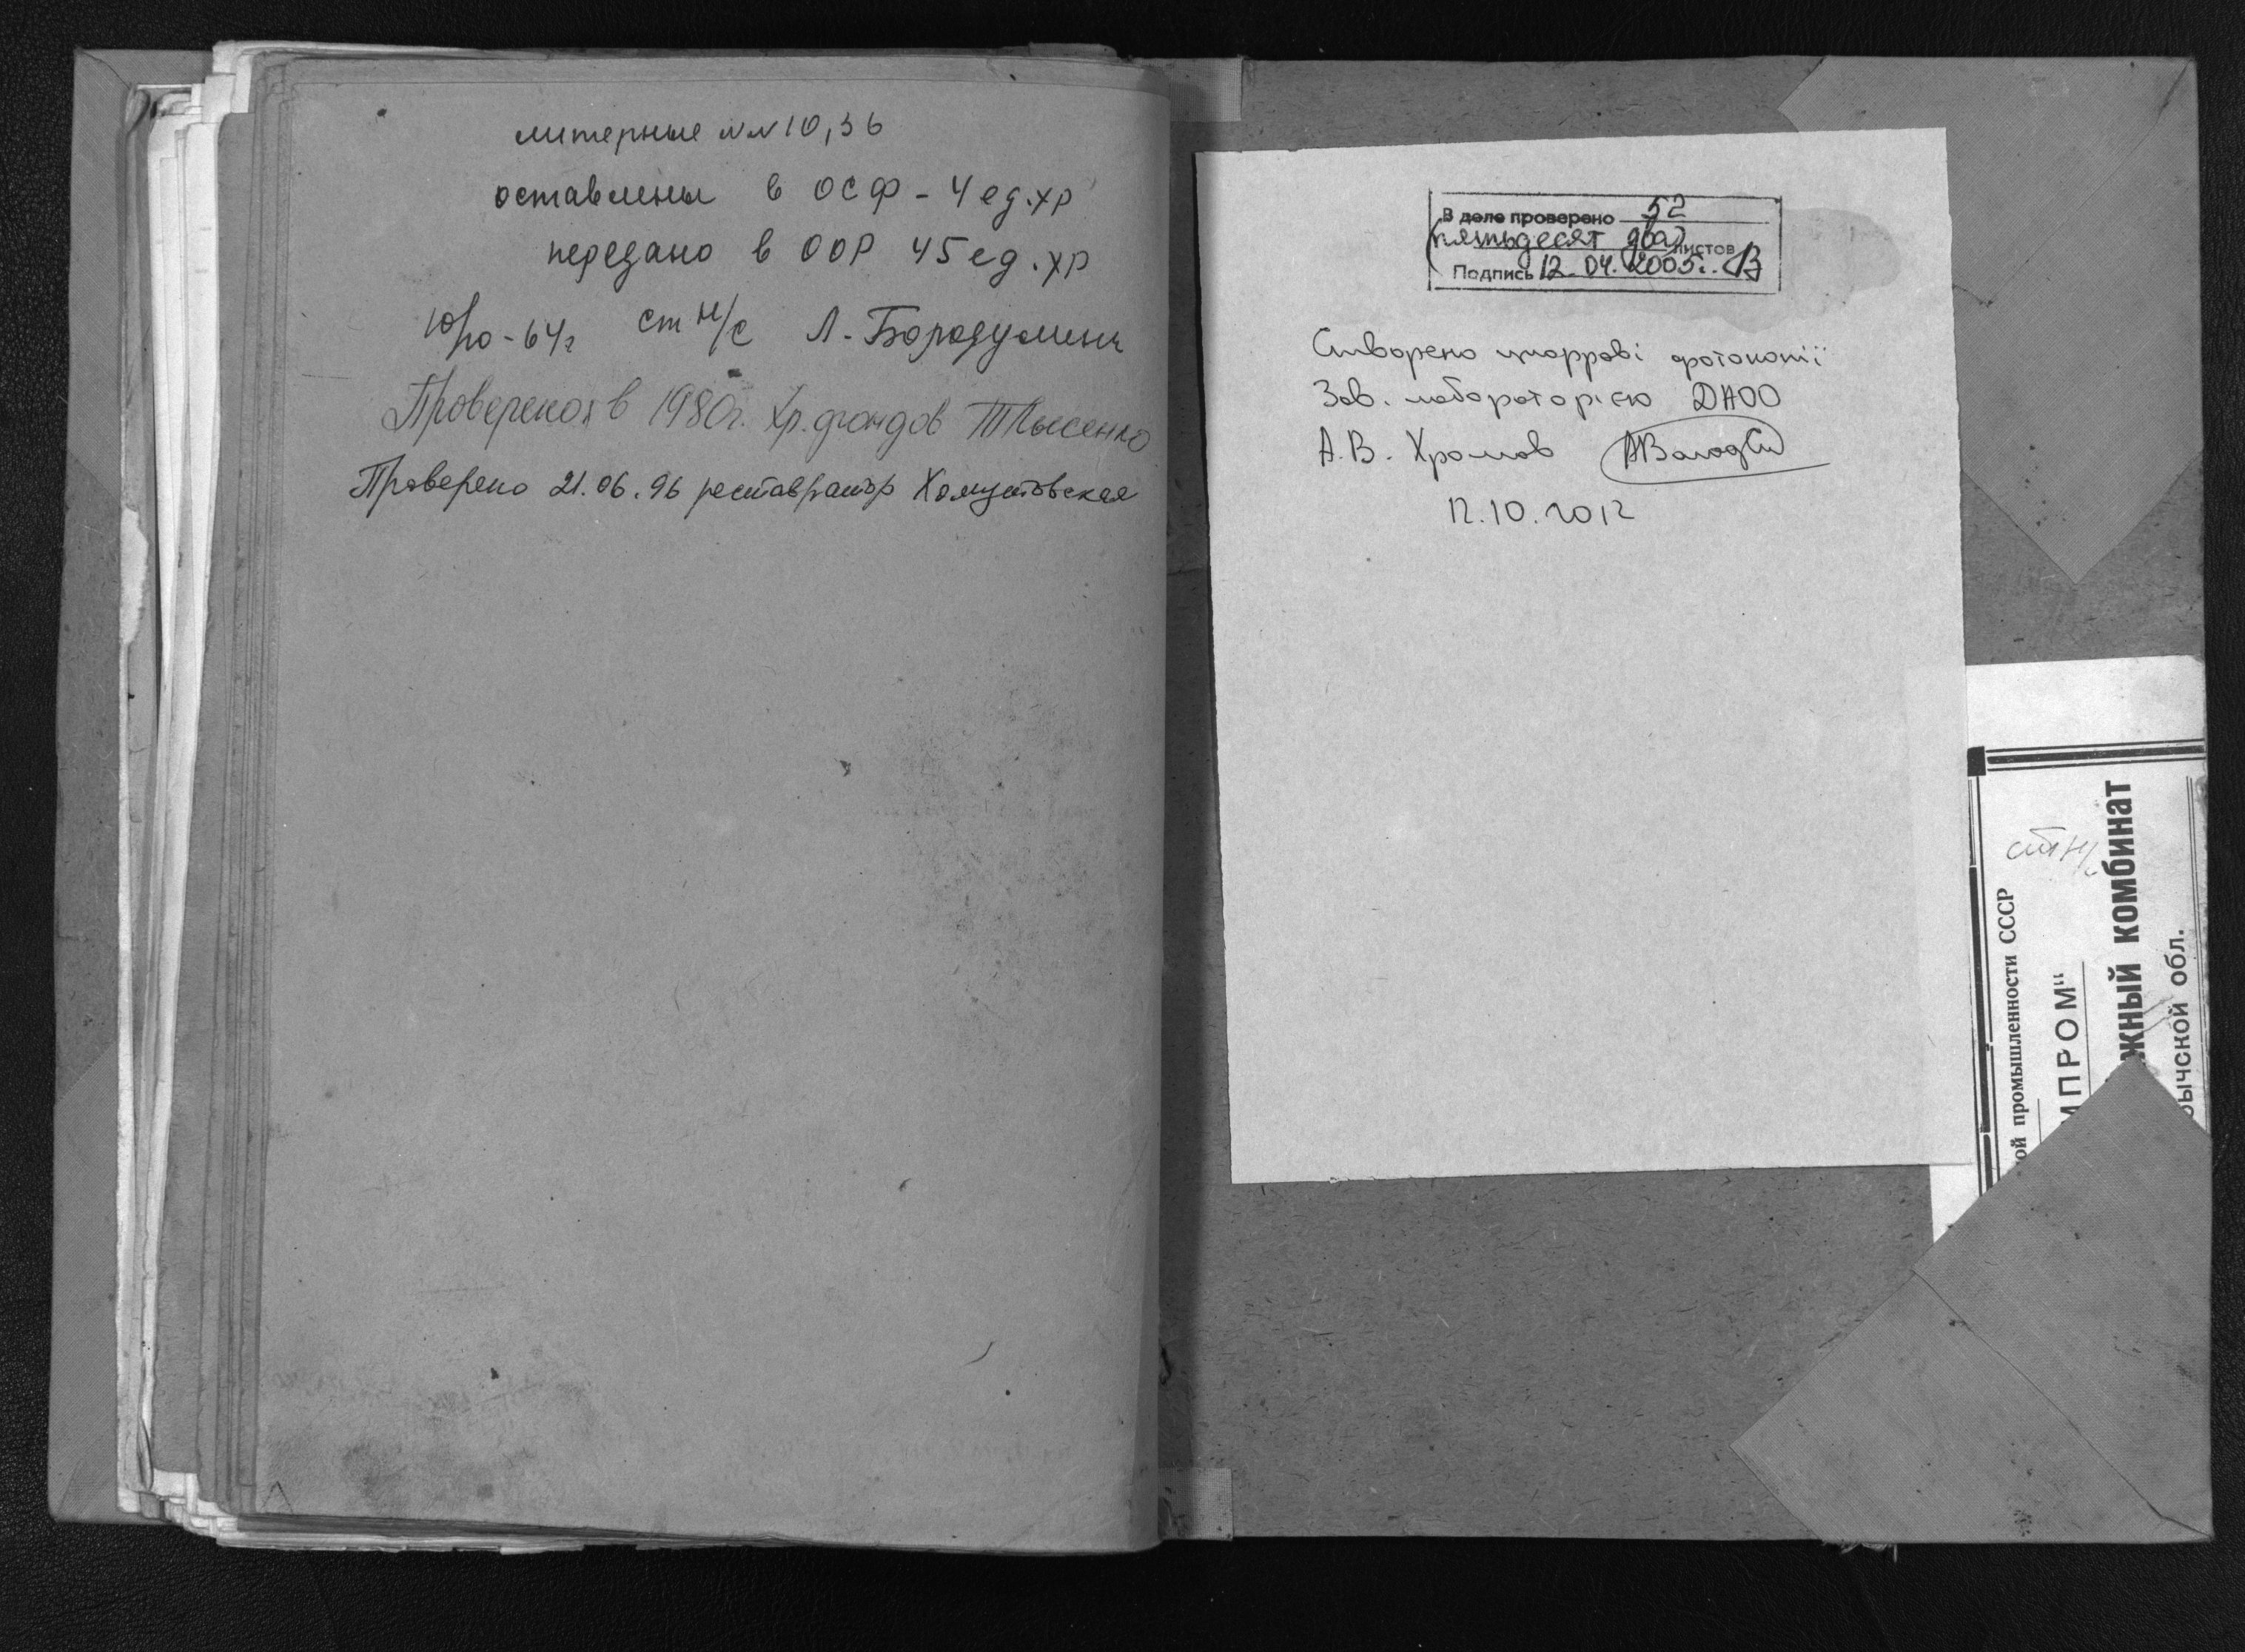 литерные NN 10, 36
оставлены в ОСФ - 4 ед. хр
передано в ООР 45 ед. хр
10/10-64г ст н/с Л.
Проверено в 1980г. Хр. фондов Т Лысенко
Проверено 21.06.96 реставратор Хомутовская
В деле проверено 52
(пятьдесят два) листов
Подпись 12.04.2005г.
Створено цифрові фотокопії
Зав. лабораторією ДАОО
А.В. Хромов
12.10.2012
ой промышленности СССР
МПРОМ"
жный комбинат
ычской обл.